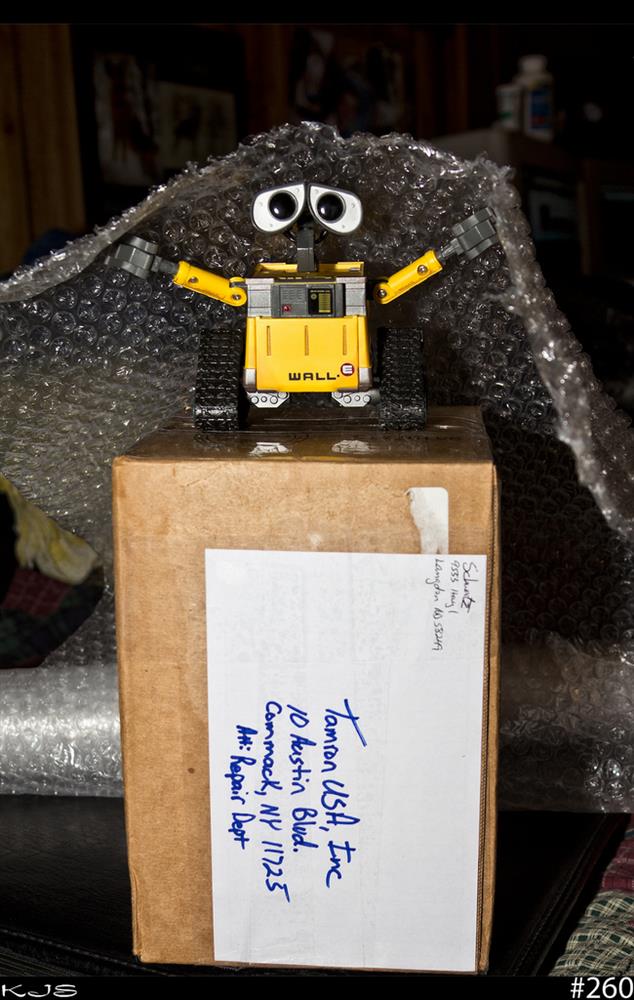 WALL•E
Schmitz
9553 Hwy 1
Langdon ND 58249
Tamron USA, Inc
10 Austin Blvd.
Commack, NY 11725
Att: Repair Dept
KJS
#260